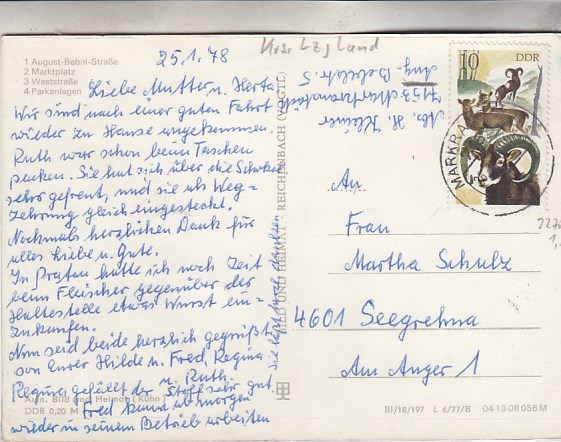 1 August-Bebel-Straße
2 Marktplatz
3 Weststraße
4 Parkanlagen
25.1.78
Liebe Mutter u. Herta
Wir sind nach einer guten Fahrt
wieder zu Hause angekommen.
Ruth war schon beim Taschen
packen. Sie hat sich über die Schokol.
sehr gefreut, und sie als Weg-
zehrung gleich eingesteckt.
Nochmals herzlichen Dank für
alles Liebe u. Gute.
In Pratau hatte ich noch Zeit
beim Fleischer gegenüber der
Haltestelle etwas Wurst ein-
zukaufen.
Nun seid beide herzlich gegrüßt
von Eurer Hilde u. Fred, Regina
u. Ruth
Regina gefällt der Stoff sehr gut
Fred kann ab morgen
wieder in seinem Betrieb arbeiten
Aufn. Bild und Heimat (Kühn)
DDR 0,20 M
BILD UND HEIMAT REICHENBACH (VOGTL)
Krsr Lzg Land
Abs. H. Kleiner
7153 Markranstädt
Aug. Bebelstr. 5
10 DDR
MARKRA
An
Frau
Martha Schulz
4601 Seegrehna
Am Anger 1
III/18/197 L 6/77/B 04 13 08 056 M